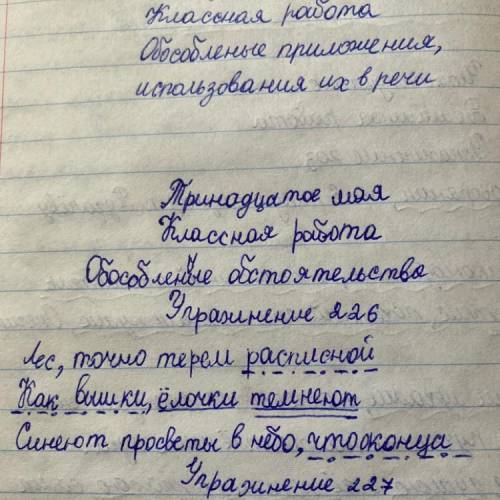 Классная работа
Обособленые приложения,
использования их в речи
Тринадцатое мая
Классная работа
Обособленные обстоятельства
Упражинение 226
Лес, точно терем расписной
Как вышки, ёлочки темнеют
Синеют просветы в небо, что оконца
Упражинение 227